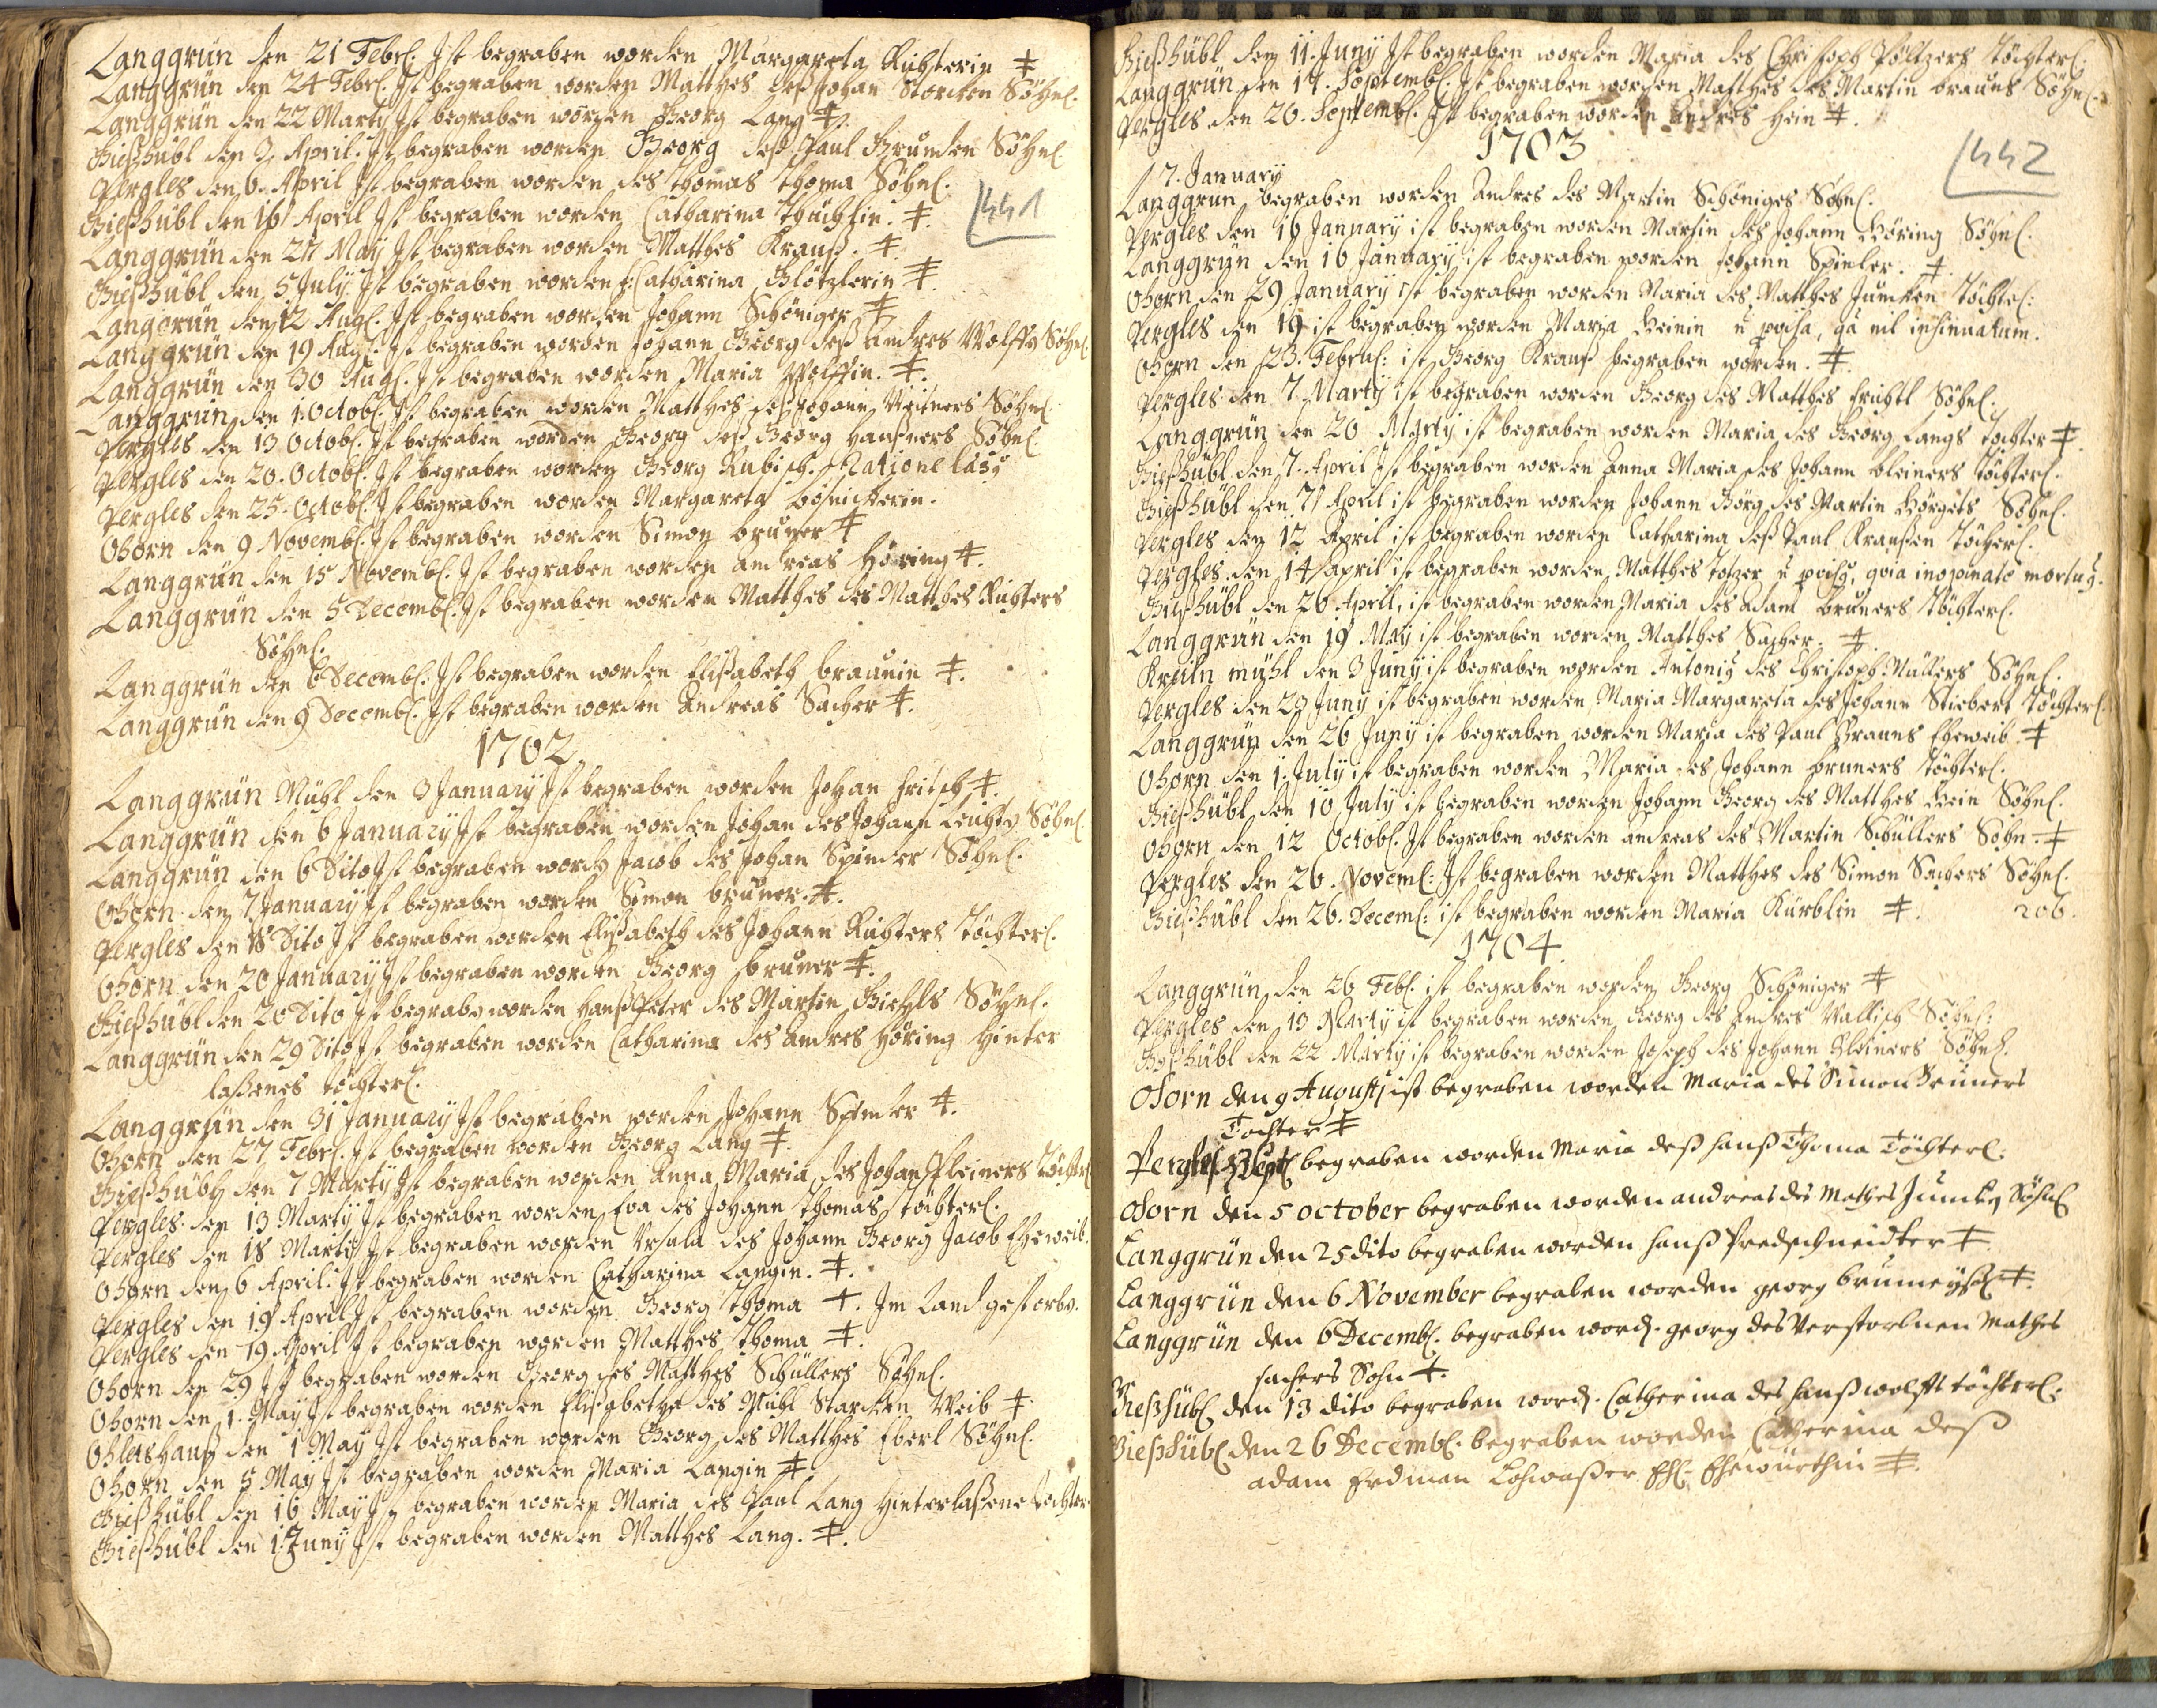 Langgrün den 21 Febrl. Ist begraben worden Margareta Richterin ‡
Langgrün den 24 Febrl. Ist begraben worden Matthes deß Johan Storcken Söhnl.
Langgrün den 22 Martÿ Ist begraben worden Georg Lang ‡.
Gießhübl den 3 April. Ist begraben worden Georg deß Paul Brunden Söhnl.
Pergles den 6. April Ist begraben worden des Thomas Thoma Söhnl.
Gießhübl den 16 April Ist begraben worden Catharina ‡.
441
Langgrün den 27 Maÿ Ist begraben worden Matthes Krauß. ‡.
Gießhübl den 5 Julÿ Ist begraben worden Catharina Glötzlerin ‡.
Langgrün den 12 Augl. Ist begraben worden Johann Schöniger ‡
Langgrün den 19 Augl. Ist begraben worden Johann Georg deß Andres Wolffs Söhnl.
Langgrün den 30 Augl. Ist begraben worden Maria Wolffin. ‡.
Langgrün den 1. Octobl. Ist begraben worden Matthes deß Johann Söhnl.
Pergles den 13 Octobl. Ist begraben worden Georg deß Georg Haußners Söhnl.
Pergles den 20. Octobl. Ist begraben worden Georg Rubisch. Ratione
Pergles den 25. Octobl. Ist begraben worden Margareta
Ohorn den 9 Novembl. Ist begraben worden Simon bruner ‡
Langgrün den 15 Novembl. Ist begraben worden andreas Höring ‡.
Langgrün den 5 Decembl. Ist begraben worden Matthes des Matthes Richters
Söhnl.
Langgrün den 6 Decembl. Ist begraben worden Elisabeth braunin ‡.
Langgrün den 9 Decembl. Ist begraben worden Andreas Sacher ‡.
1702
Langgrün Mühl den 3 Januarÿ Ist begraben worden Johan fritsch ‡.
Langgrün den 6 Januarÿ Ist begraben worden Johan des Johann Söhnl.
Langgrün den 6 Dito Ist begraben worden Jacob des Johan Spinler Söhnl.
Ohorn den 7 Januarÿ Ist begraben worden Simon bruner. ‡.
Pergles den 18 Dito Ist begraben worden Elisabeth des Johann Richters Töchterl.
Ohorn den 20 Januarÿ Ist begraben worden Georg bruner ‡.
Gießhübl den 20 Dito Ist begraben worden Hanß Peter des Martin Söhnl.
Langgrün den 29 Dito Ist begraben worden Catharina des Andres Höring Hinter
laßenes Töchterl.
Langgrün den 31 Januarÿ Ist begraben worden Johann Spinler ‡.
Ohorn den 27 Febrl. Ist begraben worden Georg Lang ‡.
Gießhübl den 7 Martÿ Ist begraben worden Anna Maria des Johan Kleiners Töchterl.
Pergles den 13 Martÿ Ist begraben worden Eva des Johann Thomas Töchterl.
Pergles den 18 Martÿ Ist begraben worden Ursula des Johann Georg Jacob Eheweib.
Ohorn den 6 April. Ist begraben worden Catharina Langin. ‡.
Pergles den 19 April Ist begraben worden Georg Thoma ‡. Im Land gestorbn.
Pergles den 19 April Ist begraben worden Matthes Thoma ‡.
Ohorn den 29 Ist begraben worden Georg des Matthes Schüllers Söhnl.
Ohorn den 1. Maÿ Ist begraben worden Elisabetha des Mühl Starcken Weib ‡
den 1 Maÿ Ist begraben worden Georg des Matthes Eberl Söhnl.
Ohorn den 5 Maÿ Ist begraben worden Maria Langin ‡
Gießhübl den 16 Maÿ Ist begraben worden Maria des Paul Lang Hinterlaßene Tochter
Gießhübl den 1. Junÿ Ist begraben worden Matthes Lang. ‡.
Gießhübl den 11. Junÿ Ist begraben worden Maria des Christoph Töchterl.
Langgrün den 17. Septembl. Ist begraben worden Matthes des Martin brauns Söhnl.
Pergles den 26. Septembl. Ist begraben worden Andres Hein ‡.
1703
442
7. Januarÿ
Langgrün begraben worden Andres des Martin Schöniges Söhnl.
Pergles den 16 Januarÿ ist begraben worden Martin des Johann Höring Söhnl.
Langgrün den 16 Januarÿ ist begraben worden Johann Spinler. ‡.
Ohorn den 29 Januarÿ ist begraben worden Maria des Matthes Juncken Töchterl:
Pergles den 19 ist begraben worden Maria Heinin ñ proisa, qa nil insinuatum.
Ohorn den 23. Februl: ist Georg Krauß begraben worden. ‡.
Pergles den 7 Martÿ ist begraben worden Georg des Matthes Söhnl.
Langgrün den 20 Martÿ ist begraben worden Maria des Georg Langs Tochter ‡
Gießhübl den 7. April Ist begraben worden Anna Maria des Johann kleiners Töchterl.
Gießhübl den 7 April ist begraben worden Johann Görg des Martin Söhnl.
Pergles den 12 April ist begraben worden Catharina deß Paul Kraußen Töchterl.
Pergles den 14 april ist begraben worden Matthes Totzer ñ , qvia inopinato mortuÿ.
Gießhübl den 26 April, ist begraben worden Maria des Adam bruners Töchterl.
Langgrün den 19 Maÿ ist begraben worden Matthes Sacher. ‡
den 3 Junÿ ist begraben worden Antoniÿ des Christoph Müllers Söhnl.
Pergles den 23 Junÿ ist begraben worden Maria Margareta des Johann Stiebert Töchterl.
Langgrün den 26 Junÿ ist begraben worden Maria des Paul Brauns Eheweib ‡
Ohorn den 1. Julÿ ist begraben worden Maria des Johann bruners Töchterl.
Gießhübl den 10 Julÿ ist begraben worden Johann Georg des Matthes Hein Söhnl.
Ohorn den 12 Octobl. Ist begraben worden andreas des Martin Schüllers Sohn ‡
Pergles den 26. Noveml: Ist begraben worden Matthes des Simon Sachers Söhnl.
Gießhübl den 26. Deceml: ist begraben worden Maria Kürblin ‡. 206.
1704
Langgrün den 26 Febl. ist begraben worden Georg Schöniger ‡
Pergles den 13 Martÿ ist begraben worden Georg des Andres Wallisch Söhnl:
Gießhübl den 22 Martÿ ist begraben worden Joseph des Johann Kleiners Söhnl.
Ohorn den 9 Augustj ist begraben worden Maria des Simon Bruners
Tochter ‡
Pergles Sept begraben worden Maria deß Hanß Thoma Töchterl:
Ohorn den 5 october begraben worden andreas des Mathes Juncken Söhnl
Langgrün den 25 dito begraben worden Hanß Predschneidter ‡
Langgrün den 6 November begraben worden georg ‡.
Langgrün den 6 Decembl. begraben word. georg des Verstorbnen Mathes
sachers Sohn ‡.
Gießhübl den 13 dito begraben word. Catherina des Hanß wolfft töchterl.
Gießhübl den 26 Decembl. begraben worden Catherina deß
adam Erdman Lohwaßer Ehl. Ehewürthin ‡.